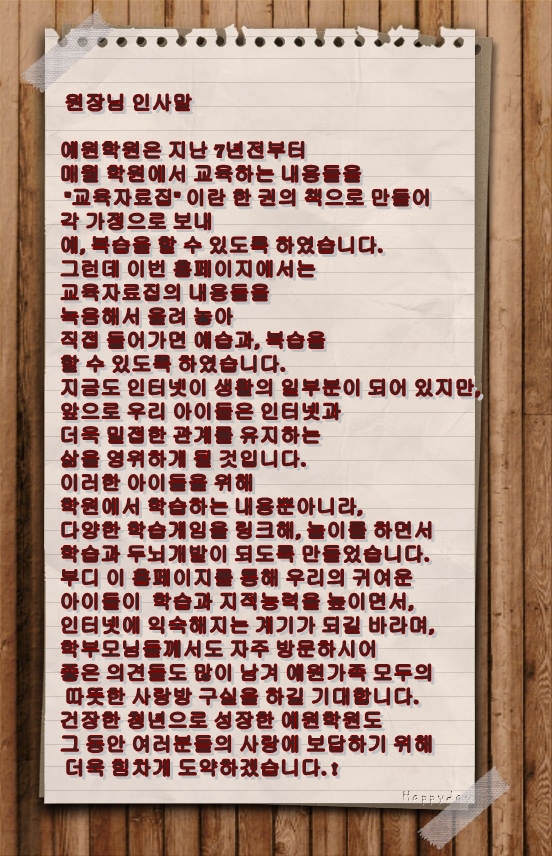 원장님 인사말
예원학원은 지난 7년전부터
매월 학원에서 교육하는 내용들을
"교육자료집" 이란 한 권의 책으로 만들어
각 가정으로 보내
예, 복습을 할 수 있도록 하였습니다.
그런데 이번 홈페이지에서는
교육자료집의 내용들을
녹음해서 올려 놓아
직접 들어가면 예습과, 복습을
할 수 있도록 하였습니다.
지금도 인터넷이 생활의 일부분이 되어 있지만,
앞으로 우리 아이들은 인터넷과
더욱 밀접한 관계를 유지하는
삶을 영위하게 될 것입니다.
이러한 아이들을 위해
학원에서 학습하는 내용뿐아니라,
다양한 학습게임을 링크해, 놀이를 하면서
학습과 두뇌개발이 되도록 만들었습니다.
부디 이 홈페이지를 통해 우리의 귀여운
아이들이 학습과 지적능력을 높이면서,
인터넷에 익숙해지는 계기가 되길 바라며,
학부모님들께서도 자주 방문하시어
좋은 의견들도 많이 남겨 예원가족 모두의
따뜻한 사랑방 구실을 하길 기대합니다.
건장한 청년으로 성장한 예원학원도
그 동안 여러분들의 사랑에 보답하기 위해
더욱 힘차게 도약하겠습니다.!
Happyday